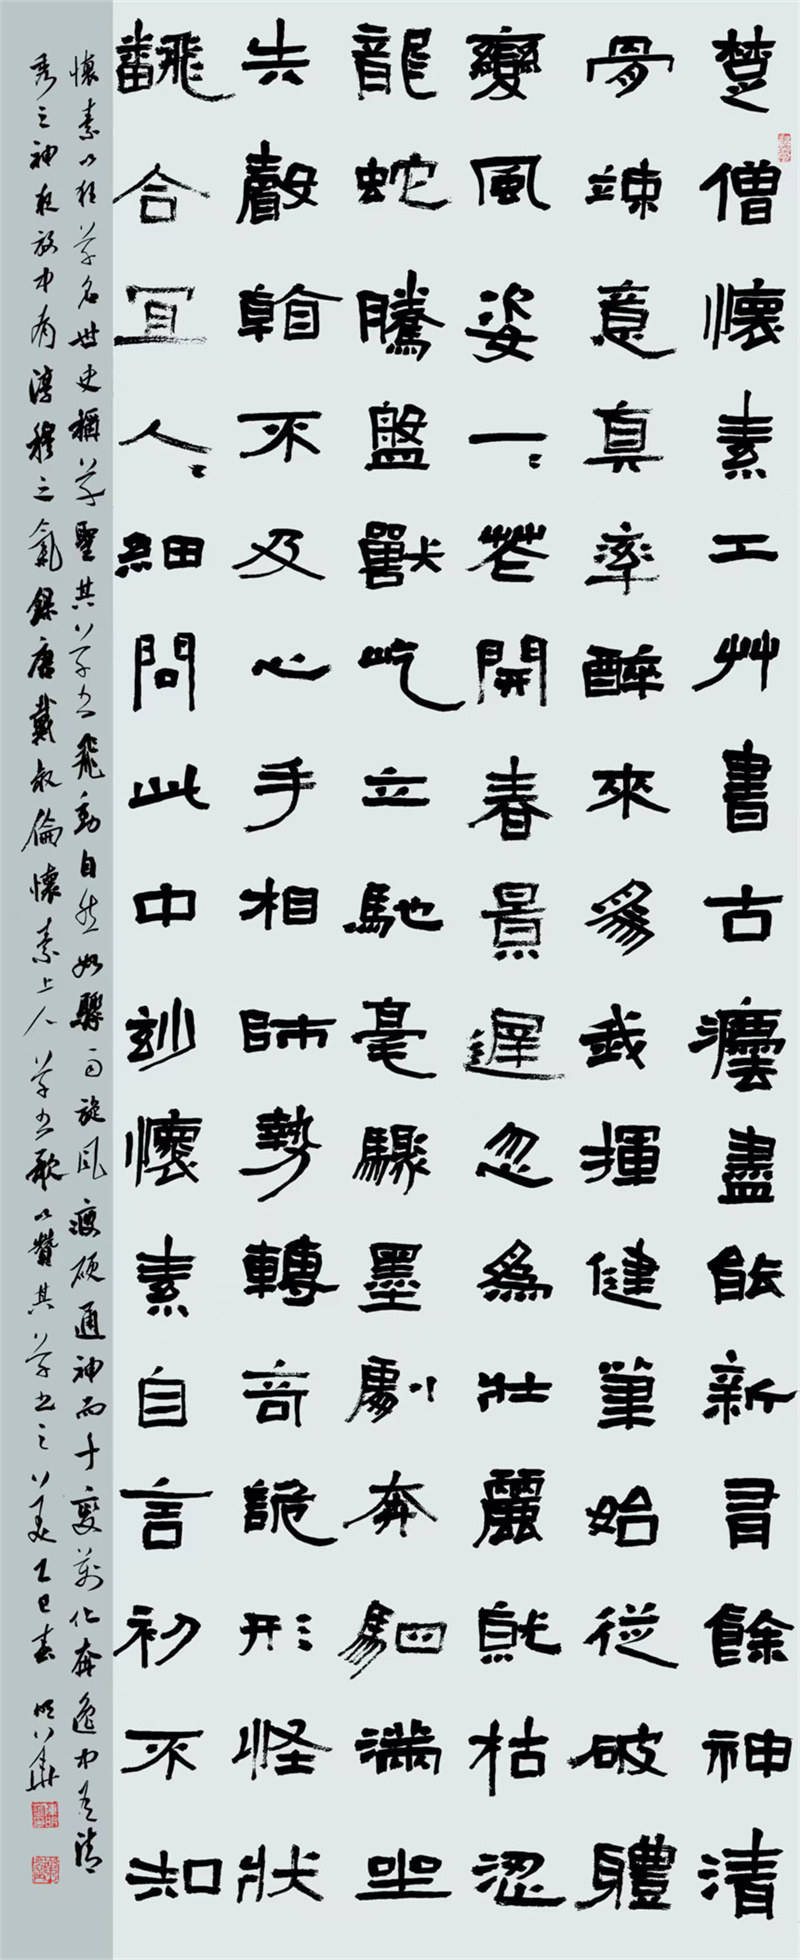 楚僧懷素工艸書古灋盡能新有餘神清
骨竦意真率醉來為我揮健筆始從破體
變風姿一〻花開春景遲忽為壯麗就枯澀
龍蛇騰盤獸屹立馳毫驟墨劇奔駟滿坐
失聲看不及心手相師勢轉奇詭形怪狀
翻合宜人〻細問此中玅懷素自言初不知
懷素以狂草名世史稱草聖其草書飛動自然如驟雨旋風瘦硬通神而千變萬化奔逸中有清
秀之神狂放中有淳穆之氣錄唐戴叔倫懷素上人草書歌以贊其草書之美乙巳春明華